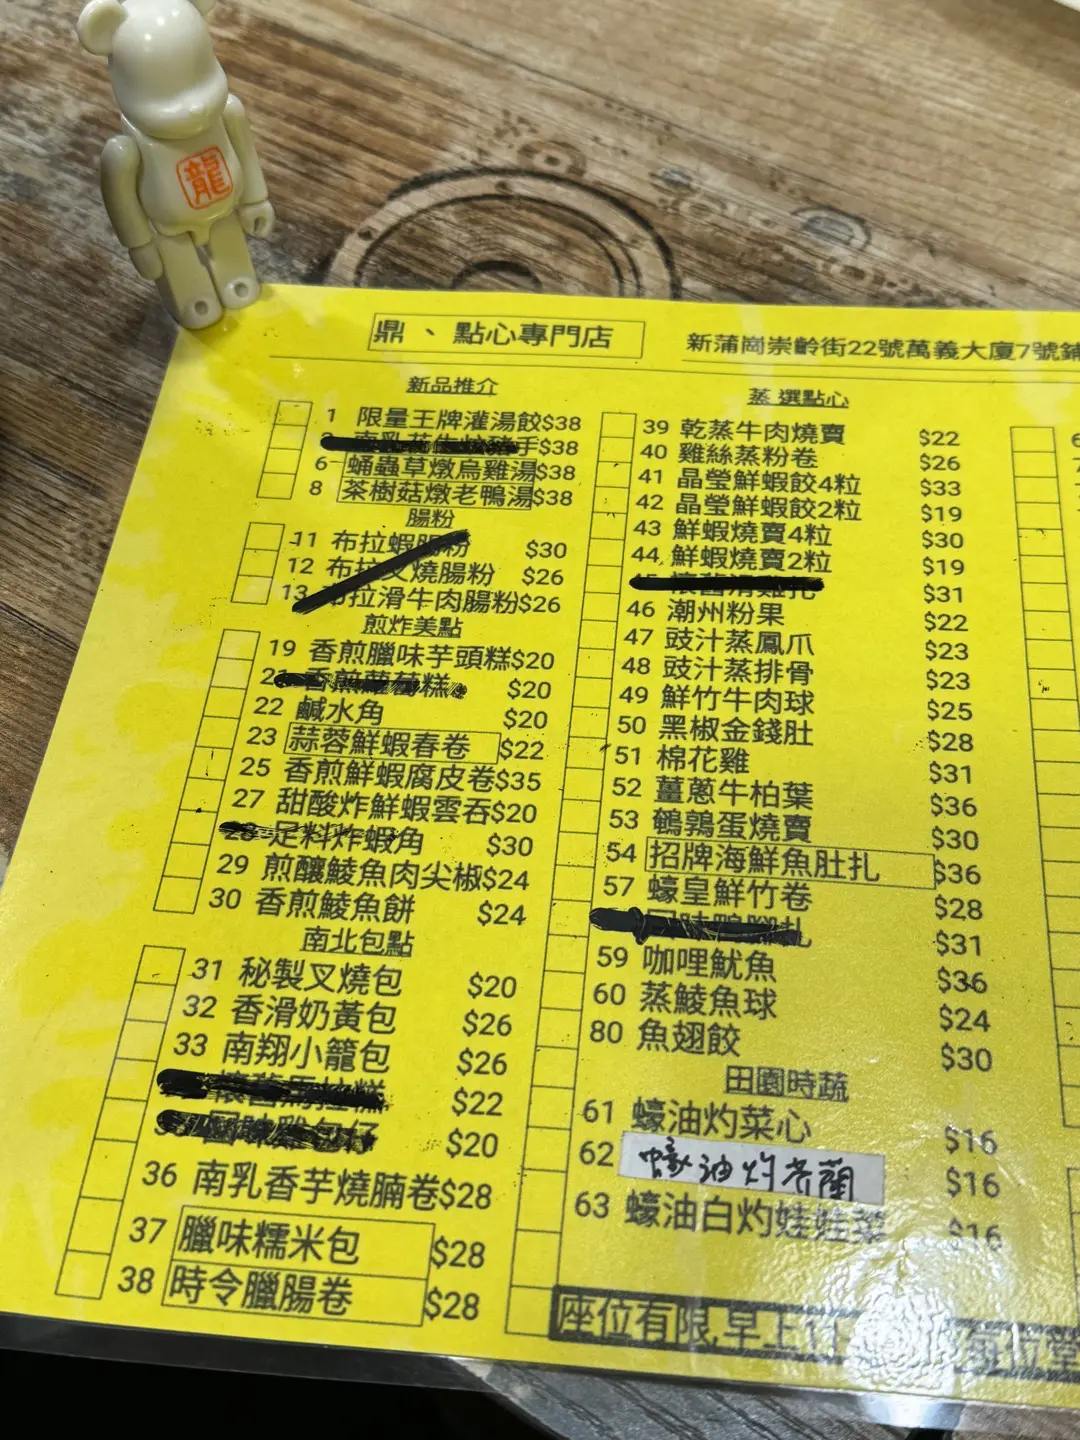 龍
鼎、點心專門店
新蒲崗崇齡街22號萬義大廈7號鋪
新品推介
1 限量王牌灌湯餃$38
手$38
6 蛹蟲草燉烏雞湯$38
8 茶樹菇燉老鴨湯$38
腸粉
11 布拉蝦腸粉 $30
12 布拉叉燒腸粉 $26
13 布拉滑牛肉腸粉$26
煎炸美點
19 香煎臘味芋頭糕$20
21 香煎蘿蔔糕 $20
22 鹹水角 $20
23 蒜蓉鮮蝦春卷 $22
25 香煎鮮蝦腐皮卷$35
27 甜酸炸鮮蝦雲吞$20
28 足料炸蝦角 $30
29 煎釀鯪魚肉尖椒$24
30 香煎鯪魚餅 $24
南北包點
31 秘製叉燒包 $20
32 香滑奶黃包 $26
33 南翔小籠包 $26
懷舊馬拉糕 $22
雞包仔 $20
36 南乳香芋燒腩卷$28
37 臘味糯米包 $28
38 時令臘腸卷 $28
蒸選點心
39 乾蒸牛肉燒賣 $22
40 雞絲蒸粉卷 $26
41 晶瑩鮮蝦餃4粒 $33
42 晶瑩鮮蝦餃2粒 $19
43 鮮蝦燒賣4粒 $30
44 鮮蝦燒賣2粒 $19
45 懷舊滑雞扎 $31
46 潮州粉果 $22
47 豉汁蒸鳳爪 $23
48 豉汁蒸排骨 $23
49 鮮竹牛肉球 $25
50 黑椒金錢肚 $28
51 棉花雞 $31
52 薑蔥牛柏葉 $36
53 鵪鶉蛋燒賣 $30
54 招牌海鮮魚肚扎 $36
57 蠔皇鮮竹卷 $28
扎 $31
59 咖哩魷魚 $36
60 蒸鯪魚球 $24
80 魚翅餃 $30
田園時蔬
61 蠔油灼菜心 $16
62 蠔油灼芥蘭 $16
63 蠔油白灼娃娃菜 $16
座位有限,早上 每位堂